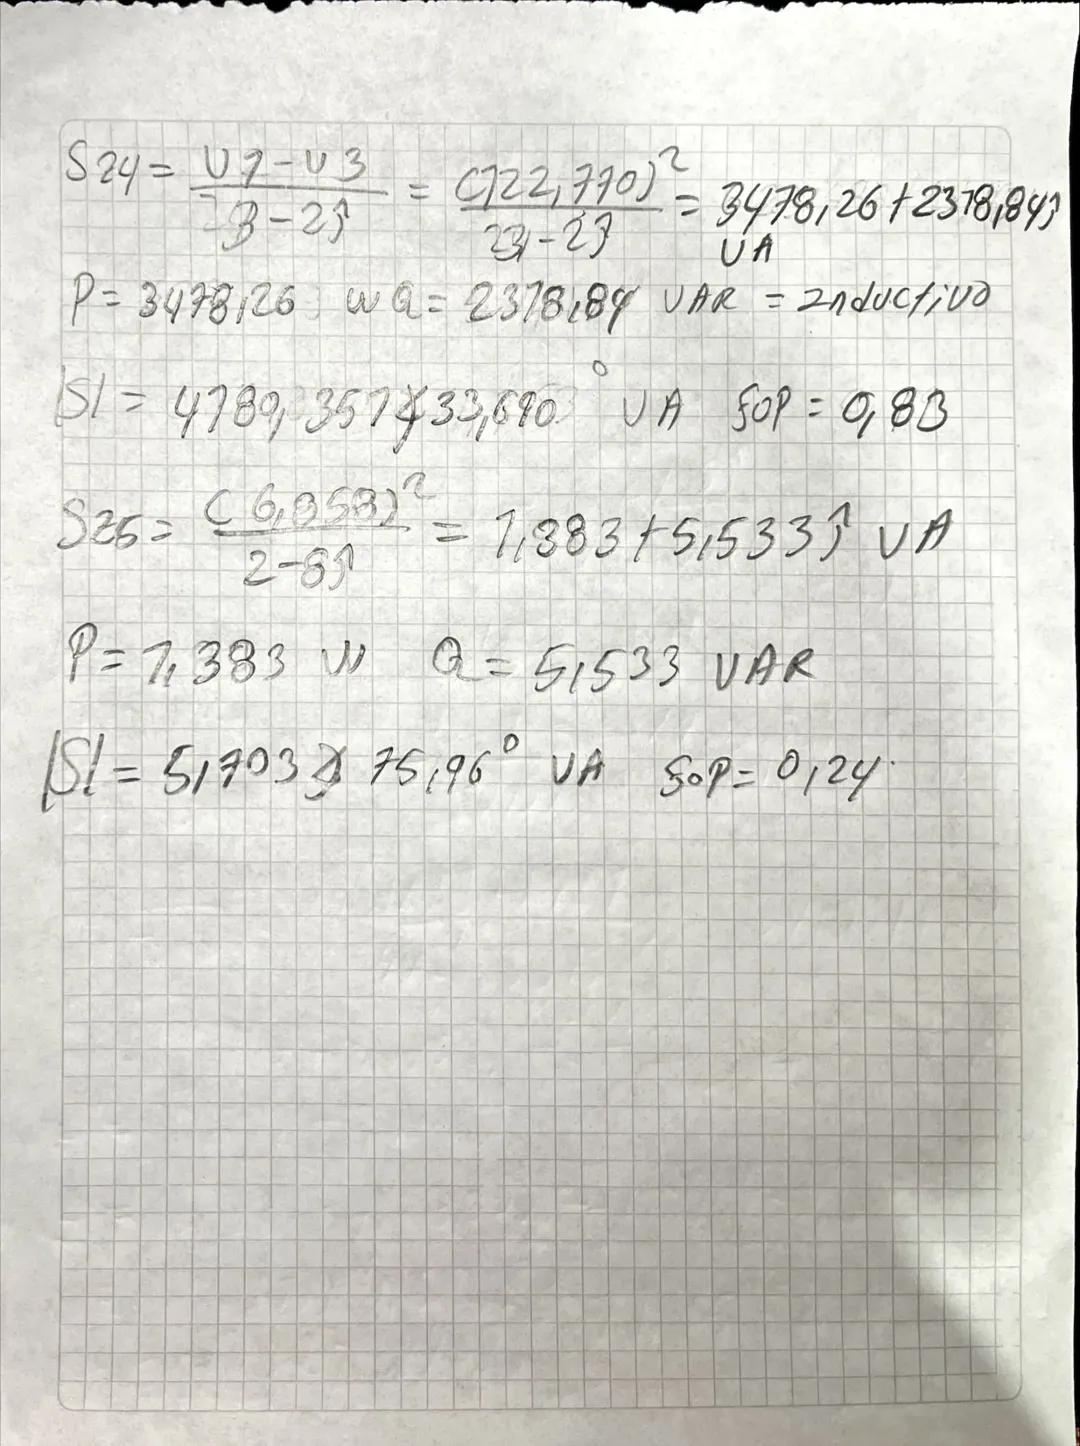 S24 = U1-U3 / 3-2j = (122,770)² / 3-2j = 3478,26+2318,84j
VA
P= 3478,26 w Q= 2318,84 VAR = Inductivo
|S| = 4180,357∡33,690° VA fop = 0,83
S26 = (6,858)² / 2-8j = 1,383+5,533j VA
P= 1,383 W Q= 5,533 VAR
|S| = 5,703∡ 75,96° VA fop= 0,24